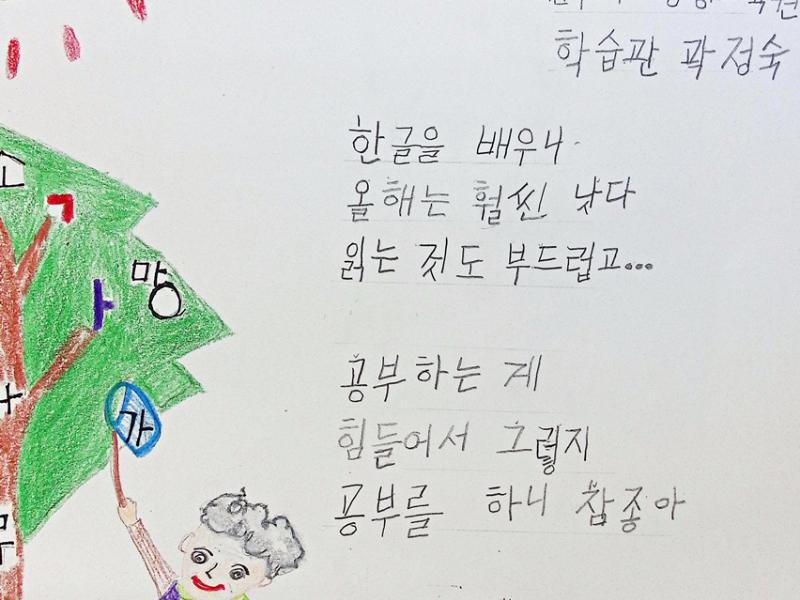 학습관 곽정숙
한글을 배우니
올해는 훨씬 낫다
읽는 것도 부드럽고...
공부하는 게
힘들어서 그렇지
공부를 하니 참 좋아
ㄱ
망
ㅏ
가